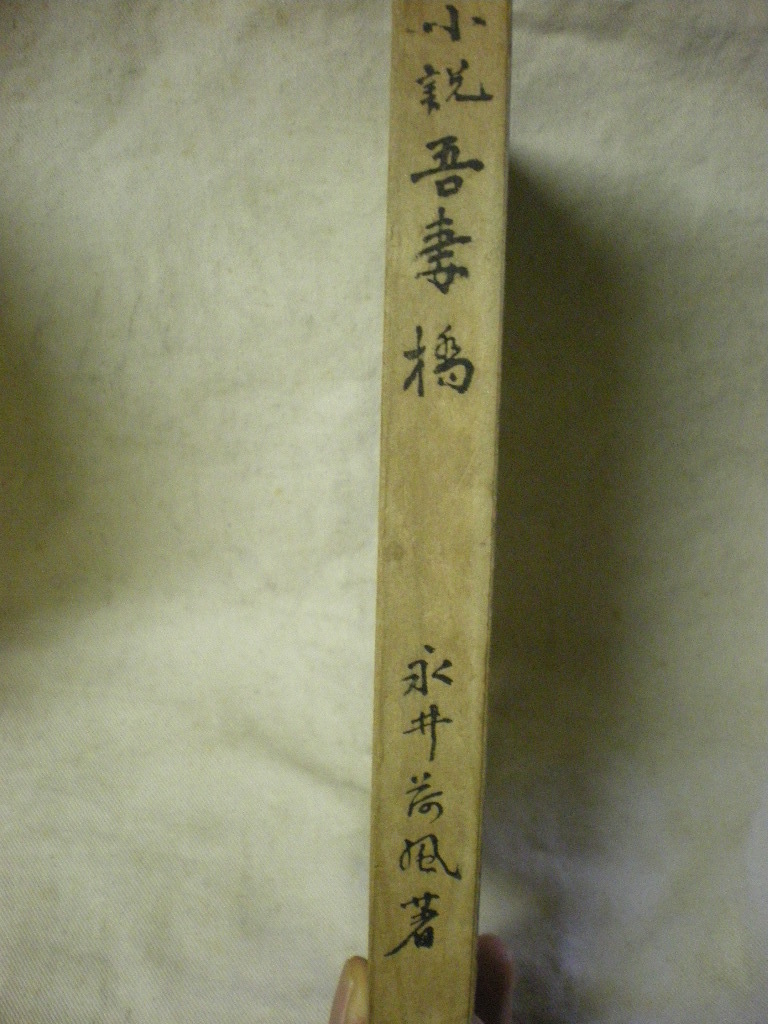 小説吾妻橋
永井荷風著